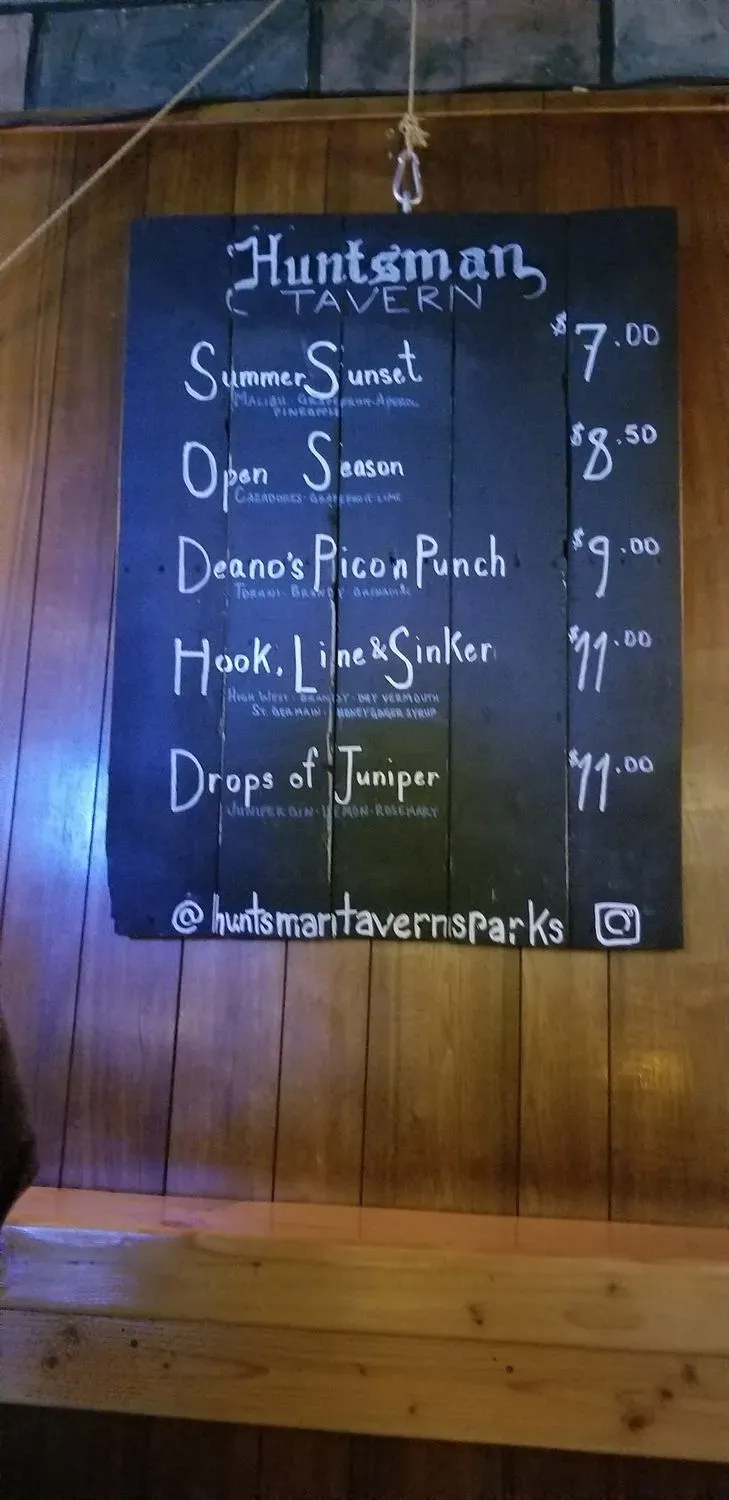 Huntsman
TAVERN
Summer Sunset $7.00
MALIBU · GRAPEFRUIT · APEROL
PINEAPPLE
Open Season $8.50
CAZADORES · GRAPEFRUIT · LIME
Deano's Picon Punch $9.00
TORANI · BRANDY
Hook, Line & Sinker $11.00
HIGH WEST · BRANDY · DRY VERMOUTH
ST. GERMAIN · HONEY GINGER SYRUP
Drops of Juniper $11.00
JUNIPER GIN · LEMON · ROSEMARY
@huntsmantavernsparks